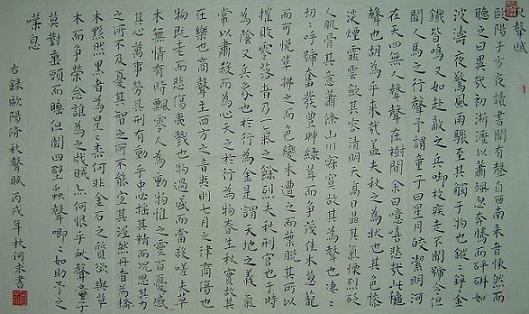 秋聲賦
歐陽子方夜讀書聞有聲自西南來者悚然而
聽之曰異哉初淅瀝以蕭颯忽奔騰而砰砌如
波濤夜驚風雨驟至其觸于物也鏦鏦錚錚金
鐵皆鳴又如赴敵之兵啣枚疾走不聞號令但
聞人馬之行聲予謂童子曰星月皎潔明河
在天四無人聲聲在樹間余曰噫嘻悲哉此秋
聲也胡為乎來哉蓋夫秋之為狀也其色慘
淡煙霏雲斂其容清明天高日晶其氣慄冽砭
人肌骨其意蕭條山川寂寥故其為聲也淒淒
切切呼號奮發豐草綠縟而爭茂佳木葱蘢
而可悅草拂之而色變木遭之而葉脫其所以
摧敗零落者乃一氣之餘烈夫秋刑官也于時
為陰又兵象也于行為金是謂天地之義氣
常以肅殺而為心天之于物春生秋實故其
在樂也商聲主西方之音夷則七月之律商傷也
物既老而悲傷夷戮也物過盛而當殺嗟夫草
木無情有時飄零人為動物惟物之靈百憂感
其心萬事勞其形有動乎中必搖其精而況思其力
之所不及憂其智之所不能宜其渥然丹者為槁
木黟然黑者為星星奈何非金石之質欲與草
木而爭榮念誰為之戕賊亦何恨乎秋聲童子
莫對垂頭而睡但聞四壁蟲聲唧唧如助予之
嘆息
右錄歐陽脩秋聲賦丙戌年秋何來書